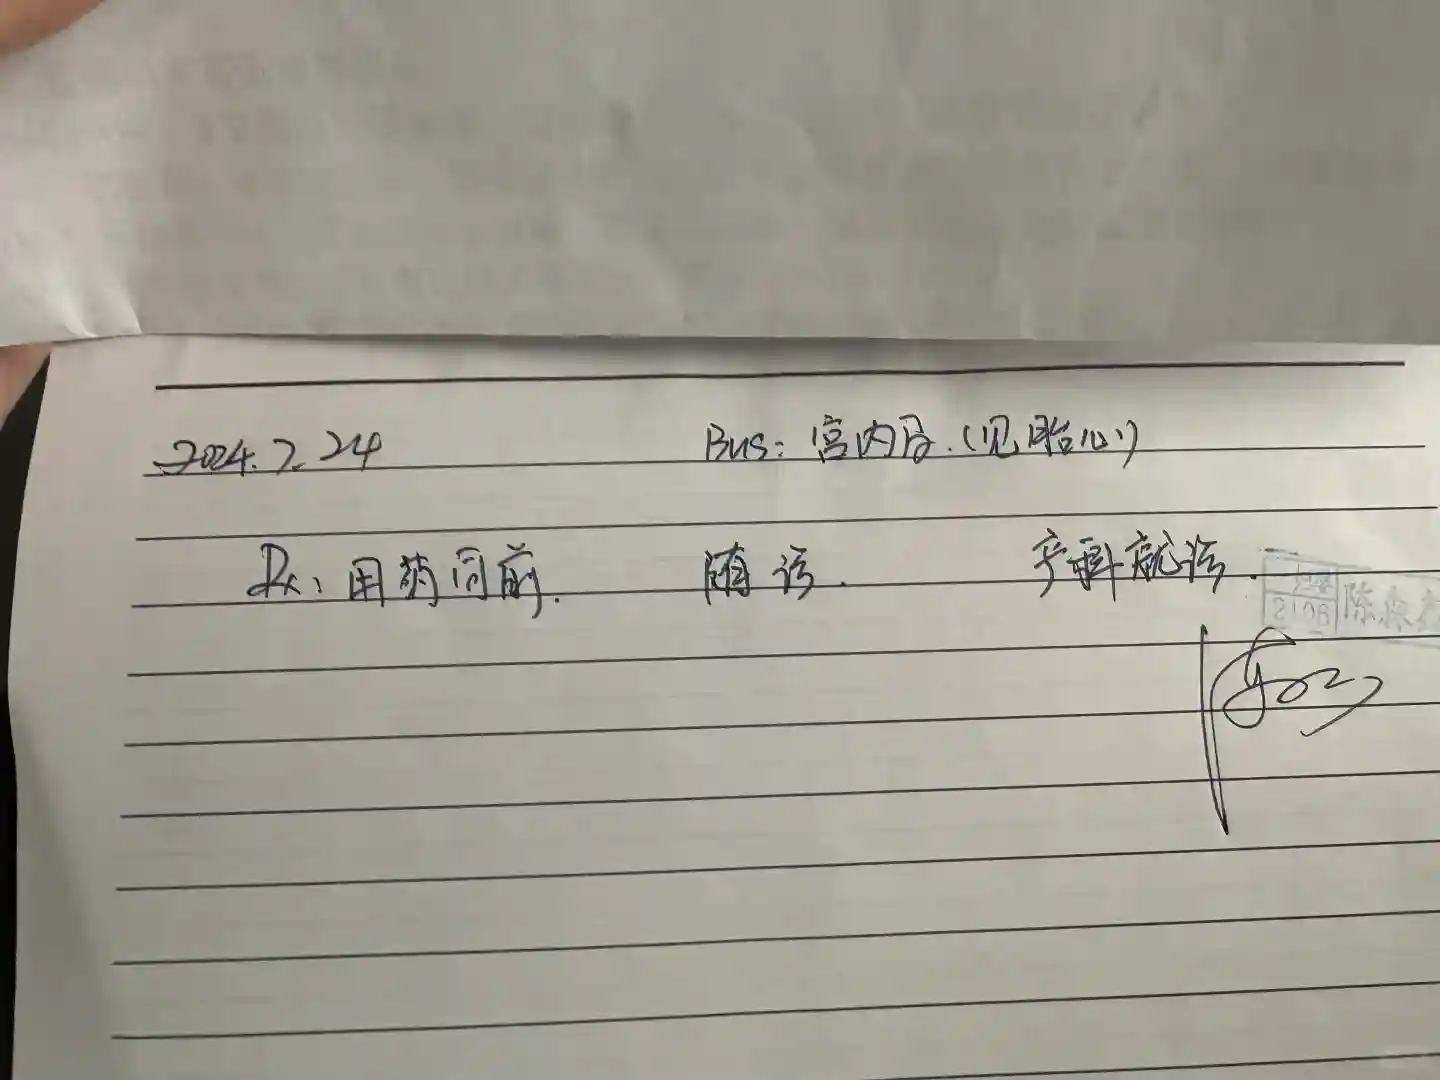 2024.7.24 Bus: 宫内孕.(见胎心)
Rx: 用药同前. 随诊. 产科就诊.
2108 陈